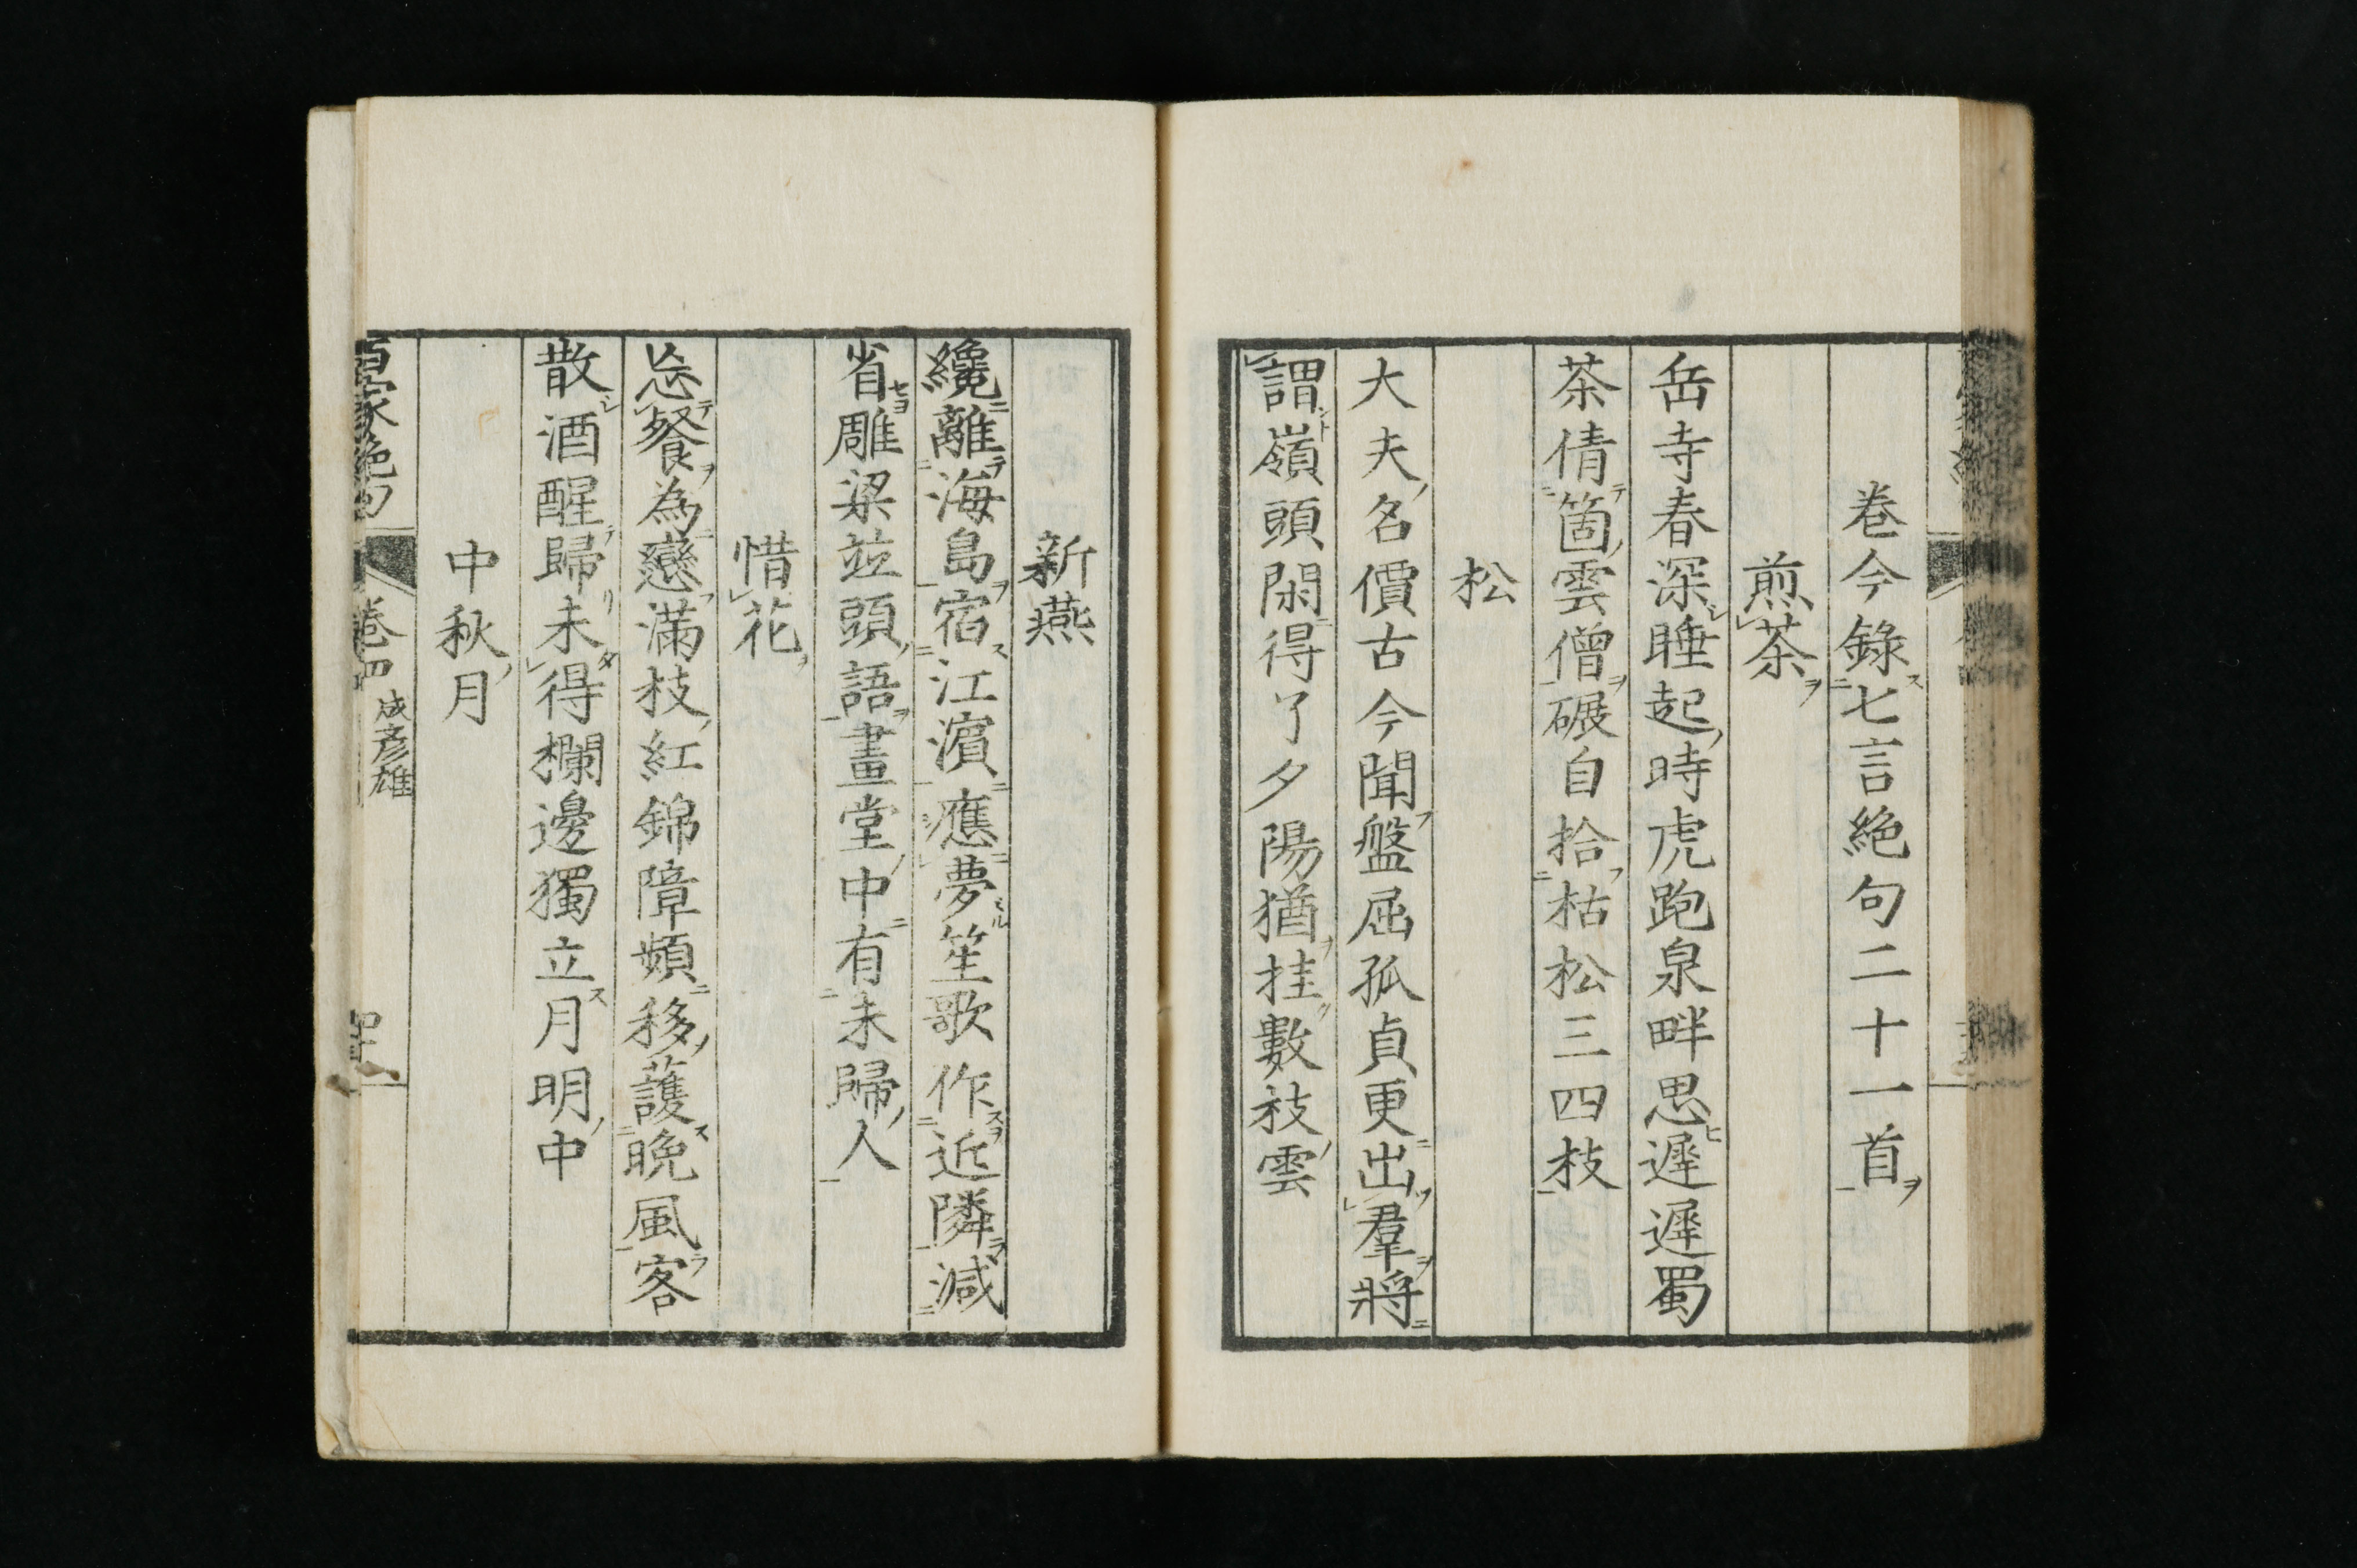 卷今錄七言絶句二十一首
煎茶
岳寺春深睡起時虎跑泉畔思遲遲蜀
茶倩箇雲僧碾自拾枯松三四枝
松
大夫名價古今聞盤屈孤貞更出羣將
謂嶺頭閑得了夕陽猶挂數枝雲
新燕
纔離海島宿江濵應夢笙歌作近隣減
省雕梁竝頭語畫堂中有未歸人
惜花
忘餐為戀滿枝紅錦障頻移護晩風客
散酒醒歸未得欄邊獨立月明中
中秋月
百家絶句 卷四 成彦雄